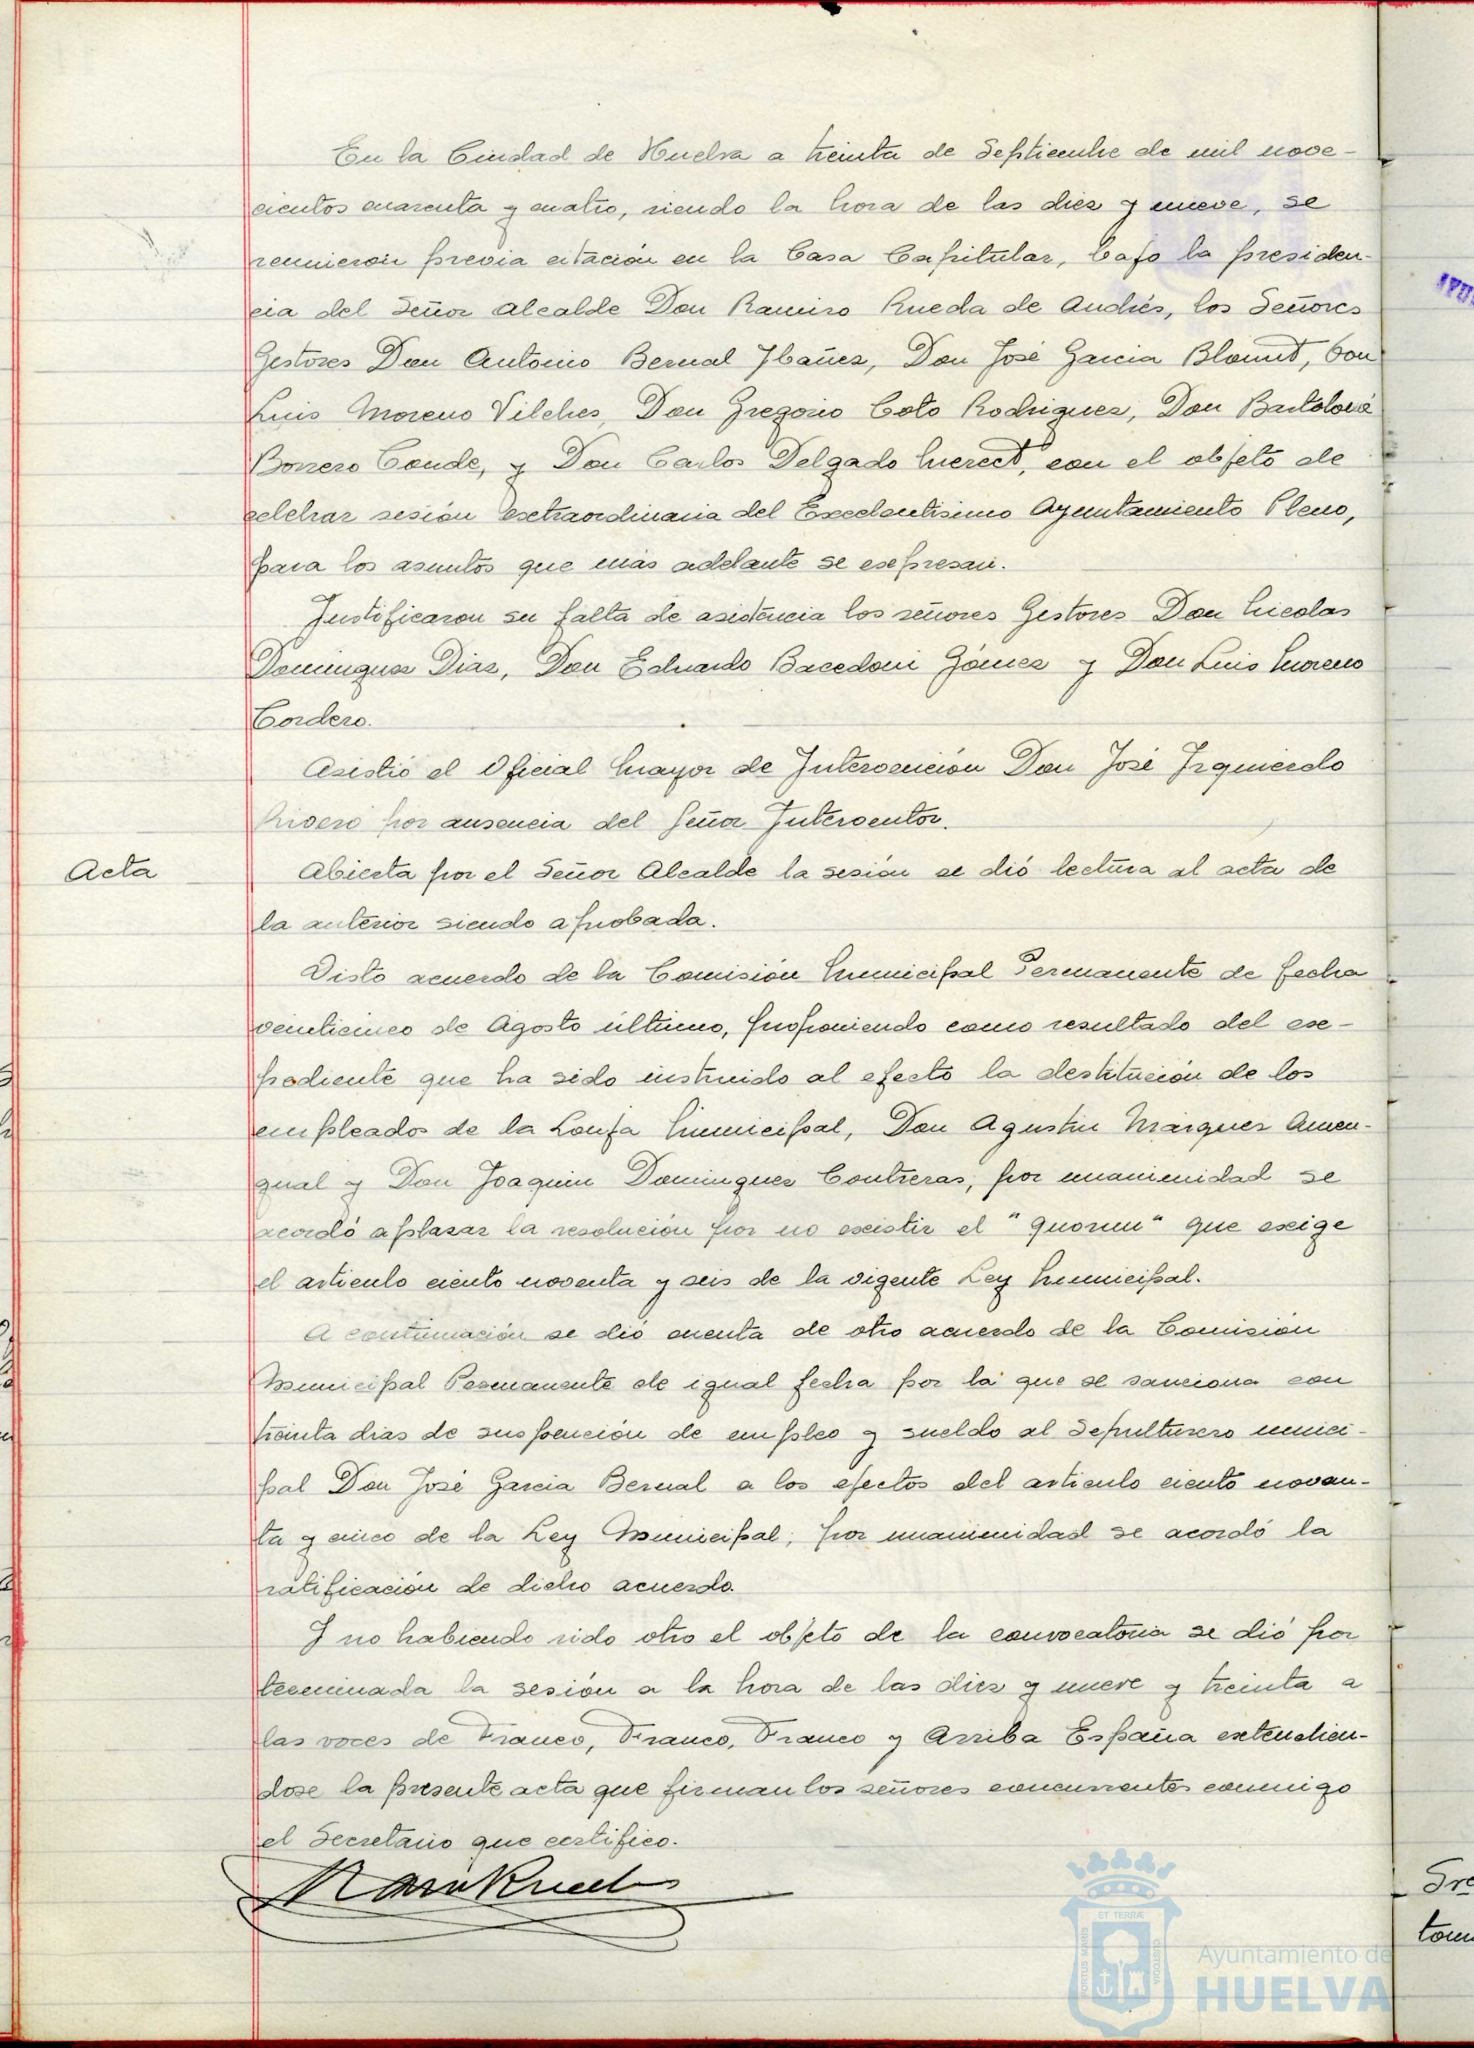 En la Ciudad de Huelva a treinta de Septiembre de mil nove-
cientos cuarenta y cuatro, siendo la hora de las diez y nueve, se
reunieron previa citación en la Casa Capitular, bajo la presiden-
cia del Señor Alcalde Don Ramiro Rueda de Andrés, los Señores
Gestores Don Antonio Bernal Ybañez, Don José Garcia Blomet, Don
Luis Moreno Vilches, Don Gregorio Coto Rodriguez, Don Bartolomé
Borrero Conde, y Don Carlos Delgado con el objeto de
celebrar sesión extraordinaria del Excelentisimo Ayuntamiento Pleno,
para los asuntos que más adelante se expresan.
Justificaron su falta de asistencia los señores Gestores Don Nicolas
Dominguez Diaz, Don Eduardo Bacedoni Gómez y Don Luis Moreno
Cordero.
Asistió el Oficial Mayor de Intervención Don José Izquierdo
Rivero por ausencia del Señor Interventor.
Acta
Abierta por el Señor Alcalde la sesión se dió lectura al acta de
la anterior siendo aprobada.
Visto acuerdo de la Comisión Municipal Permanente de fecha
veinticinco de Agosto último, proponiendo como resultado del ex-
pediente que ha sido instruido al efecto la destitución de los
empleados de la Lonja Municipal, Don Agustin Márquez Amen-
gual y Don Joaquin Dominguez Contreras, por unanimidad se
acordó aplazar la resolución por no existir el "quorum" que exige
el articulo ciento noventa y seis de la vigente Ley Municipal.
A continuación se dió cuenta de otro acuerdo de la Comisión
Municipal Permanente de igual fecha por la que se sanciona con
treinta dias de suspención de empleo y sueldo al Sepulturero munici-
pal Don José Garcia Bernal a los efectos del articulo ciento noven-
ta y cinco de la Ley Municipal; por unanimidad se acordó la
ratificación de dicho acuerdo.
Y no habiendo sido otro el objeto de la convocatoria se dió por
terminada la sesión a la hora de las diez y nueve y treinta a
las voces de Franco, Franco, Franco y Arriba España extendien-
dose la presente acta que firman los señores concurrentes conmigo
el Secretario que certifico.
Ram Rueda
ET TERRÆ
PORTUS MARIS
CUSTODIA
Ayuntamiento de
HUELVA